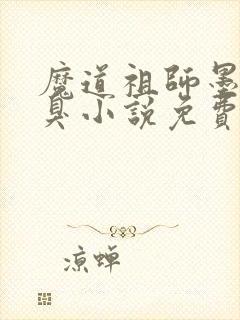 魔道祖師墨
臭小說免費
凉蝉